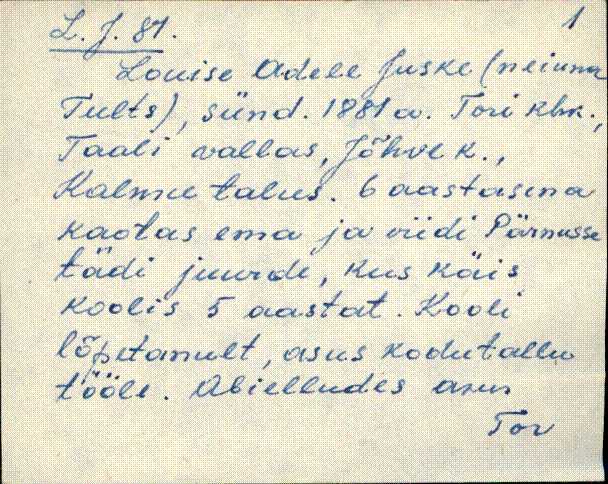 1
L. J. 81.
Louise Adele Juske (neiuna
Tults), sünd. 1881 a. Tori khk.,
Taali vallas, Jõhve k.,
Kalmu talus. 6 aastasena
kaotas ema ja viidi Pärnusse
tädi juurde, kus käis
koolis 5 aastat. Kooli
lõpetanult, asus kodutallu
tööle. Abielludes asus
Tor